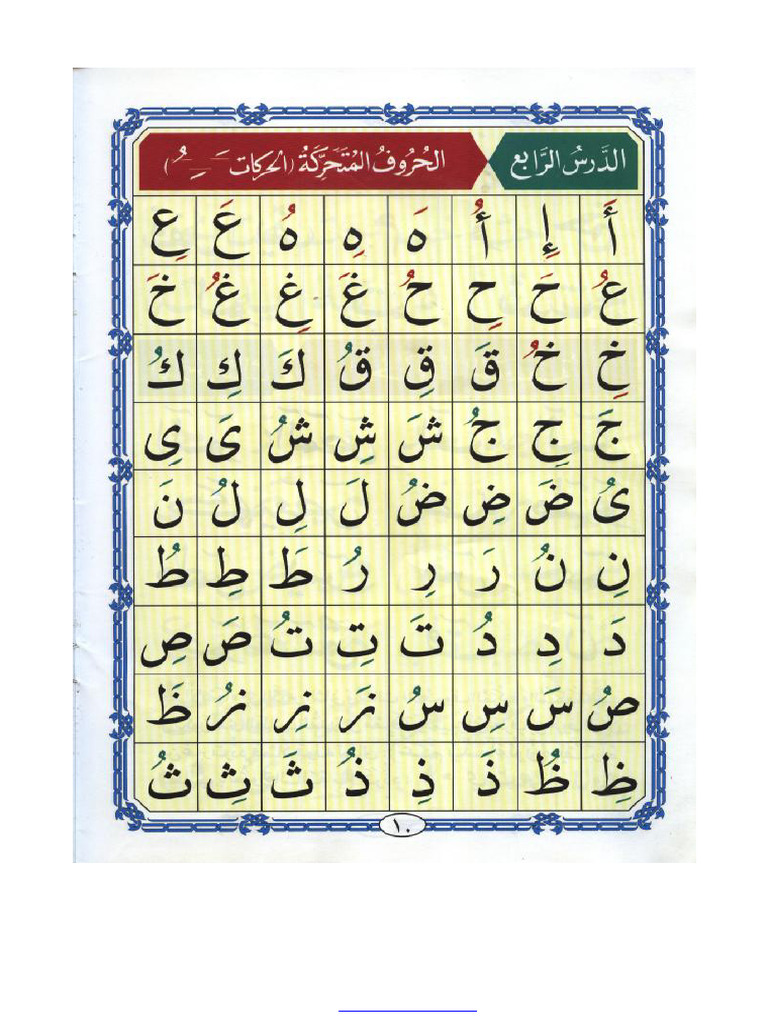 الدَّرسُ الرَّابع
الحُرُوفُ المُتَحَرِّكَةُ (الحركات ـَ ـِ ـُ)
أَ إِ أُ هَ هِ هُ عَ عِ
عُ حَ حِ حُ غَ غِ غُ خَ
خِ خُ قَ قِ قُ كَ كِ كُ
جَ جِ جُ شَ شِ شُ ىَ ىِ
ىُ ضَ ضِ ضُ لَ لِ لُ نَ
نِ نُ رَ رِ رُ طَ طِ طُ
دَ دِ دُ تَ تِ تُ صَ صِ
صُ سَ سِ سُ زَ زِ زُ ظَ
ظِ ظُ ذَ ذِ ذُ ثَ ثِ ثُ
١٠